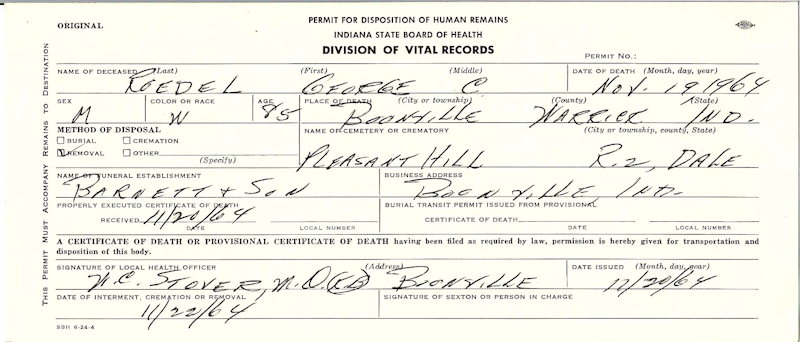 ORIGINAL
PERMIT FOR DISPOSITION OF HUMAN REMAINS
INDIANA STATE BOARD OF HEALTH
DIVISION OF VITAL RECORDS
PERMIT NO.:
THIS PERMIT MUST ACCOMPANY REMAINS TO DESTINATION
NAME OF DECEASED (Last) (First) (Middle) DATE OF DEATH (Month, day, year)
ROEDEL GEORGE C. NOV. 19 1964
SEX COLOR OR RACE AGE PLACE OF DEATH (City or township) (County) (State)
M W 85 BOONVILLE WARRICK IND.
METHOD OF DISPOSAL NAME OF CEMETERY OR CREMATORY (City or township, county, State)
BURIAL CREMATION
REMOVAL OTHER
(Specify)
PLEASANT HILL R.2, DALE
NAME OF FUNERAL ESTABLISHMENT BUSINESS ADDRESS
BARNETT & SON BOONVILLE IND.
PROPERLY EXECUTED CERTIFICATE OF DEATH BURIAL TRANSIT PERMIT ISSUED FROM PROVISIONAL
RECEIVED 11/20/64 CERTIFICATE OF DEATH
DATE LOCAL NUMBER DATE LOCAL NUMBER
A CERTIFICATE OF DEATH OR PROVISIONAL CERTIFICATE OF DEATH having been filed as required by law, permission is hereby given for transportation and
disposition of this body.
SIGNATURE OF LOCAL HEALTH OFFICER (Address) DATE ISSUED (Month, day, year)
W.C. STOVER, M.D. BOONVILLE 11/20/64
DATE OF INTERMENT, CREMATION OR REMOVAL SIGNATURE OF SEXTON OR PERSON IN CHARGE
11/22/64
SBH 6-24-4